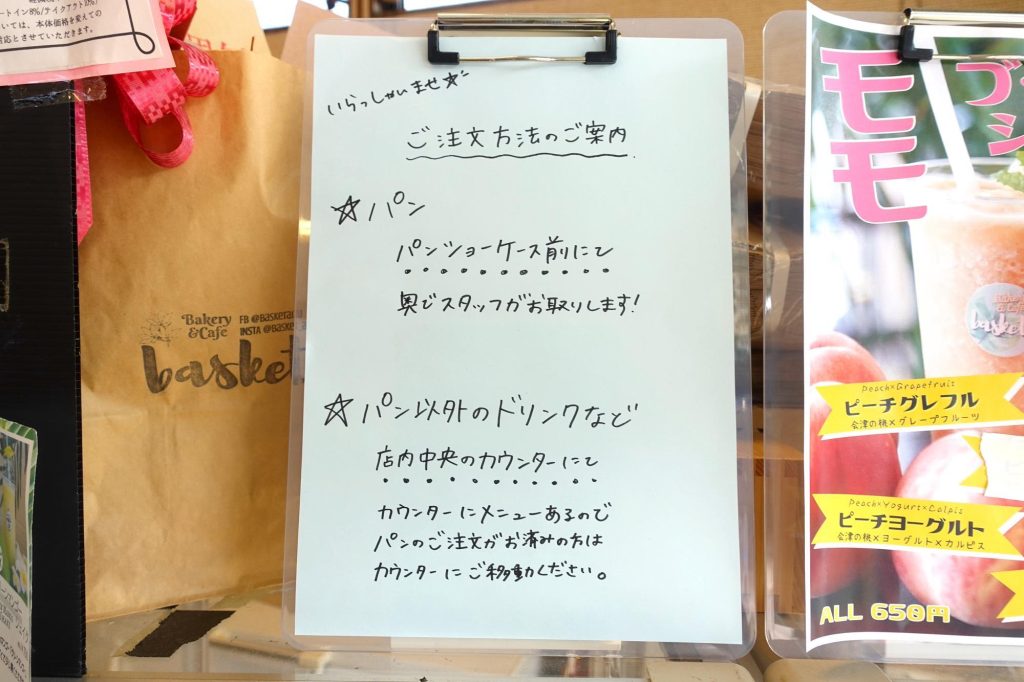 いては、本体価格を変えての
対応とさせていただきます。
Bakery
&Cafe
baske
いらっしゃいませ☆
ご注文方法のご案内
☆パン
パンショーケース前にて
奥でスタッフがお取りします!
☆パン以外のドリンクなど
店内中央のカウンターにて
カウンターにメニューあるので
パンのご注文がお済みの方は
カウンターにご移動ください。
モモ
Bakery
& Cafe
baske
Peach×Grapefruit
ピーチグレフル
会津の桃×グレープフルーツ
Peach×Yogurt×Calpis
ピーチヨーグルト
会津の桃×ヨーグルト×カルピス
ALL 650円